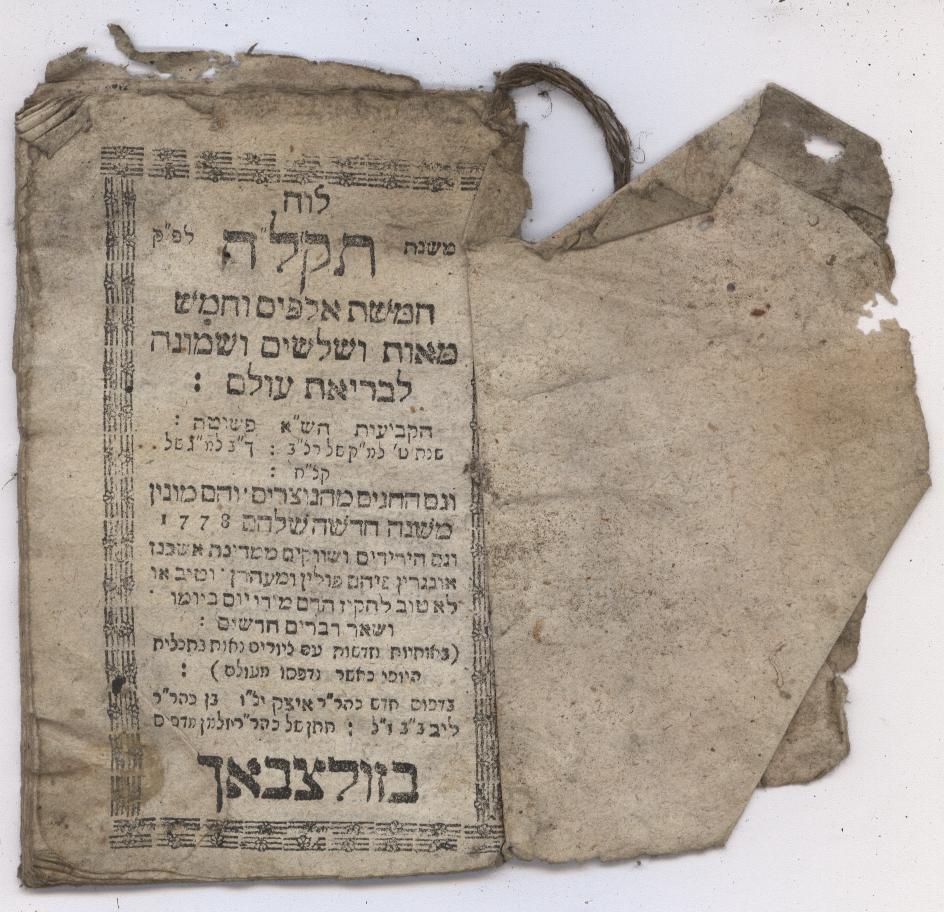 לוח
משנת תקל"ח לפ"ק
חמשת אלפים וחמש
מאות ושלשים ושמונה
לבריאת עולם :
הקביעית הש"א פשוטה :
שנת ט' למ"ק של רל"ב : ך"ב למ"ג של
קל"ח :
וגם החגים מהנוצרים והם מונין
משנה חדשה שלהם 1778
וגם הירידים ושווקים ממדינת אשכנז
אונגרין פיהם פולין ומעהרן וטיב או
לא טוב להקיז הדם מידי יום ביומו
ושאר דברים חדשים :
(באותיות חדשות עם ליורים נאות בתכלית
היופי כאשר נדפסו מעולם) :
בדפוס חדש כהר"ר איצק י"לו בן כהר"ר
ליב ב"ב ז"ל : חתן של כהר"ר זלמן מדפיס
בזולצבאך